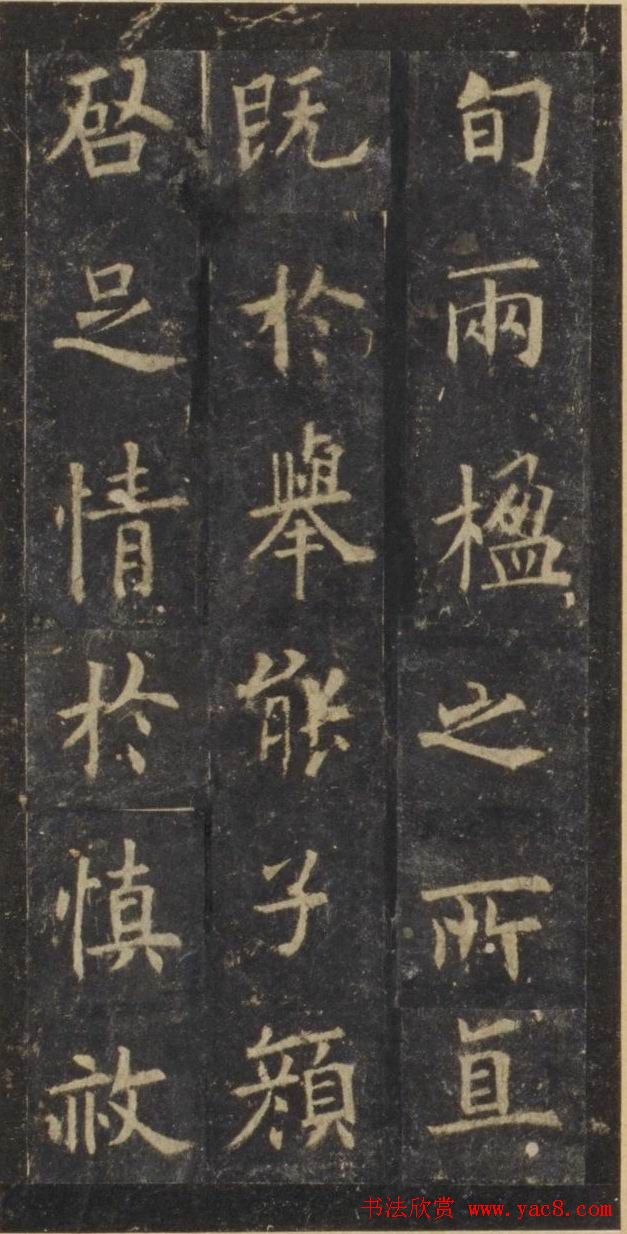 旬兩楹之所直
既於舉能子顏
啓足情於慎赦
书法欣赏 www.yac8.com